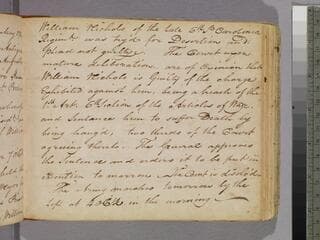 William Nichols of the late 6th So Carolina
Regimt. was tryed for Desertion and
pleads not guilty. The Court upon
mature deliberation are of Opinion that
William Nichols is Guilty of the charge
Exhibited against him, being a breach of the
1st Art. 6th Section of the Articles of War
and Sentance him to suffer Death by
being hang'd, two thirds of the Court
agreeing thereto. The General approves
the Sentance and orders it to be put in
Execution to morrow. The Court is disolvd.
The Army marches tomorrow by the
left at 4 oClk in the morning